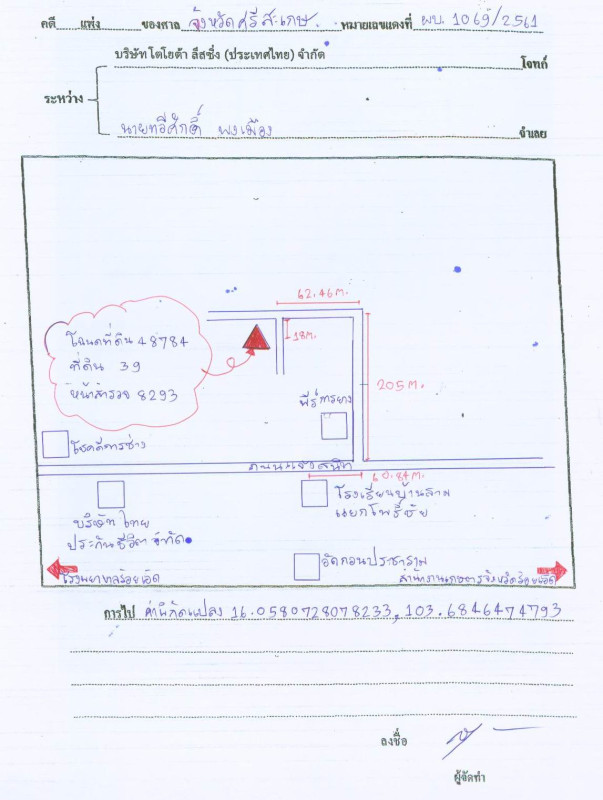 คดี แพ่ง ของศาล จังหวัดศรีสะเกษ หมายเลขแดงที่ ผบ. 1069/2561
บริษัท โตโยต้า ลีสซิ่ง (ประเทศไทย) จำกัด โจทก์
ระหว่าง
นายทวีศักดิ์ พงเมือง จำเลย
62.46 m.
18 m.
โฉนดที่ดิน 48784
ที่ดิน 39
หน้าสำรวจ 8293
205 m.
พีร์การยาง
โชคดีการช่าง
ถนนแจ้งสนิท
60.84 m.
โรงเรียนบ้านลาม
แยกโพธิ์ชัย
บริษัท ไทย
ประกันชีวิต จำกัด
วัดกอนประชาราม
โรงพยาบาลร้อยเอ็ด
จังหวัดร้อยเอ็ด
การไป ค่าพิกัดแปลง 16.0580728078233, 103.6846474793
ลงชื่อ
ผู้จัดทำ